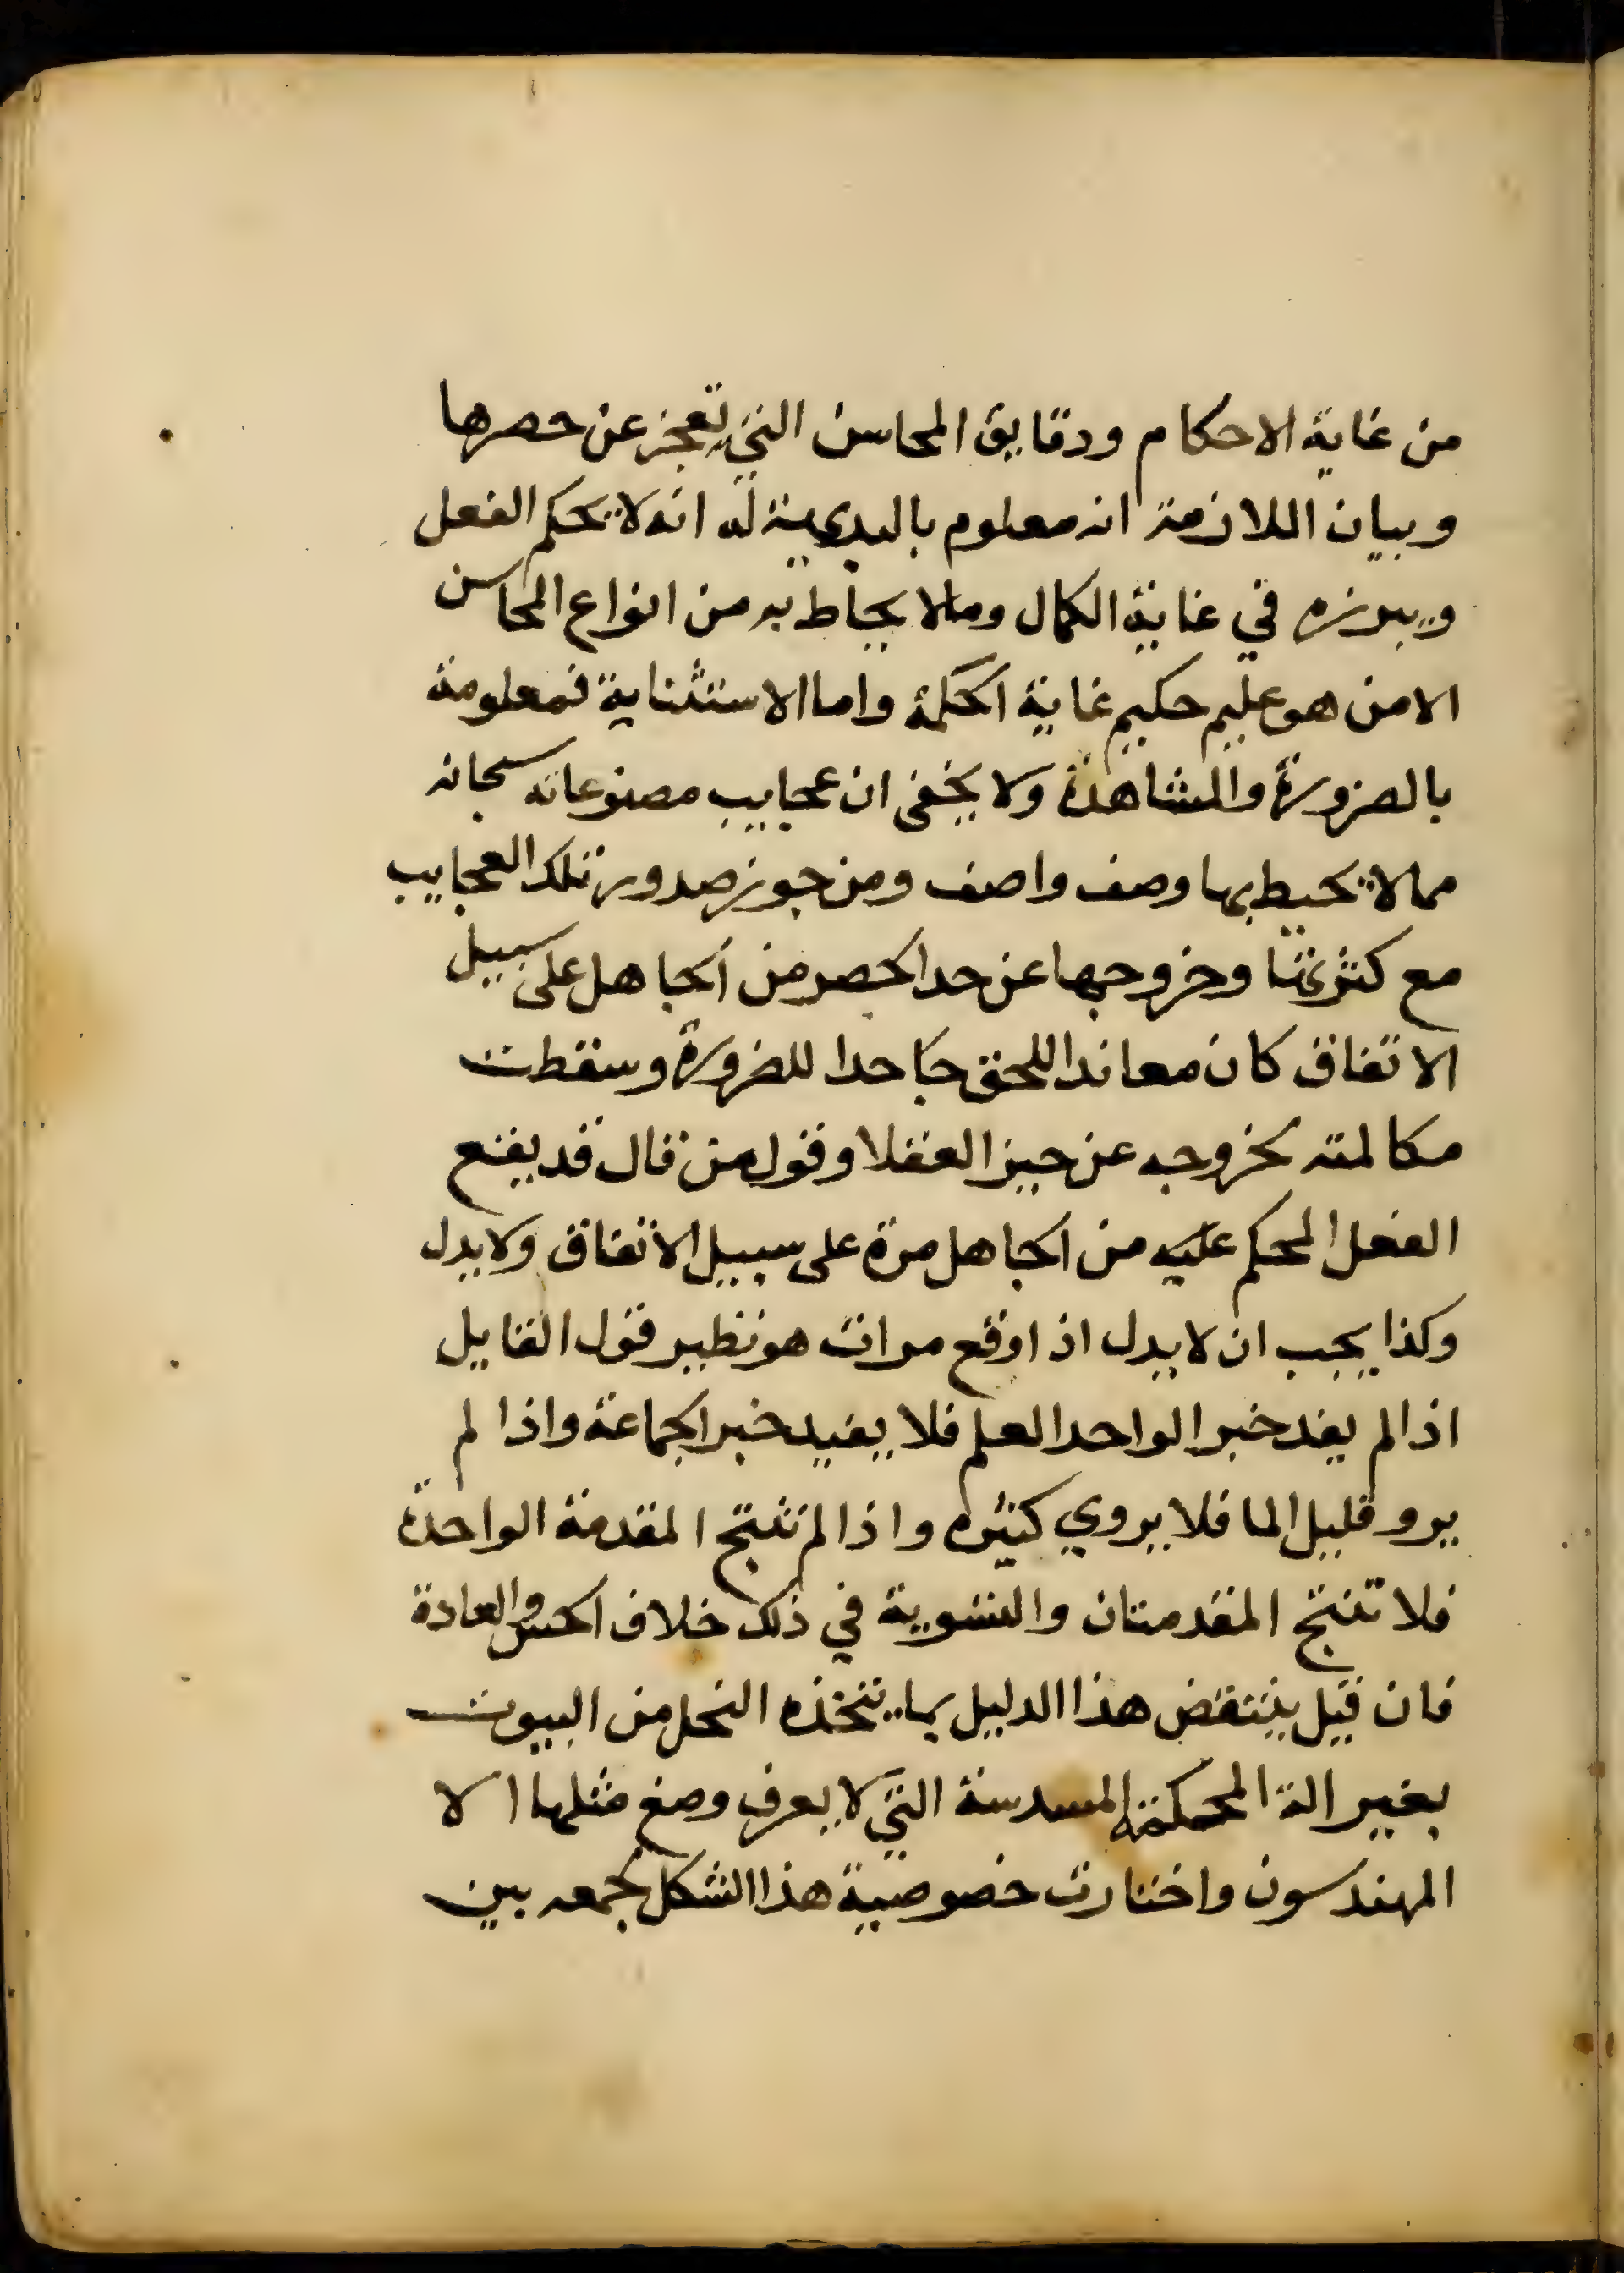 من غاية الاحكام ودقايق المحاسن التي تعجز عن حصرها
وبيان الملازمة انه معلوم بالبديهية انه لا يحكم الفعل
ويبرزه في غاية الكمال ومالا يحاط به من انواع المحاسن
الامن هو عليم حكيم غاية الحكمة واما الاستثناية فمعلومة
بالضرورة والمشاهدة ولا يخفى ان عجايب مصنوعاته سبحانه
مما لا يحيط بها وصف واصف ومن جوز صدور تلك العجايب
مع كثرتها وخروجها عن حد الحصر من الجاهل على سبيل
الاتفاق كان معاندا للحق جاحدا للضرورة وسقطت
مكالمته لخروجه عن حيز العقلا وقول من قال قد يقع
الفعل المحكم عليه من الجاهل مرة على سبيل الاتفاق ولا يدل
وكذا يجب ان لا يدل اذا وقع مرات هو نظير قول القايل
اذا لم يفد خبر الواحد العلم فلا يفيد خبر الجماعة واذا لم
يرو قليل الما فلا يروي كثيره واذا لم تنتج المقدمة الواحدة
فلا تنتج المقدمتان والتسوية في ذلك خلاف الحس والعادة
فان قيل ينتقض هذا الدليل بما يتخذه النحل من البيوت
بغير الة المحكمة المسدسة التي لا يعرف وضع مثلها الا
المهندسون واختارت خصوصية هذا الشكل لجمعه بين